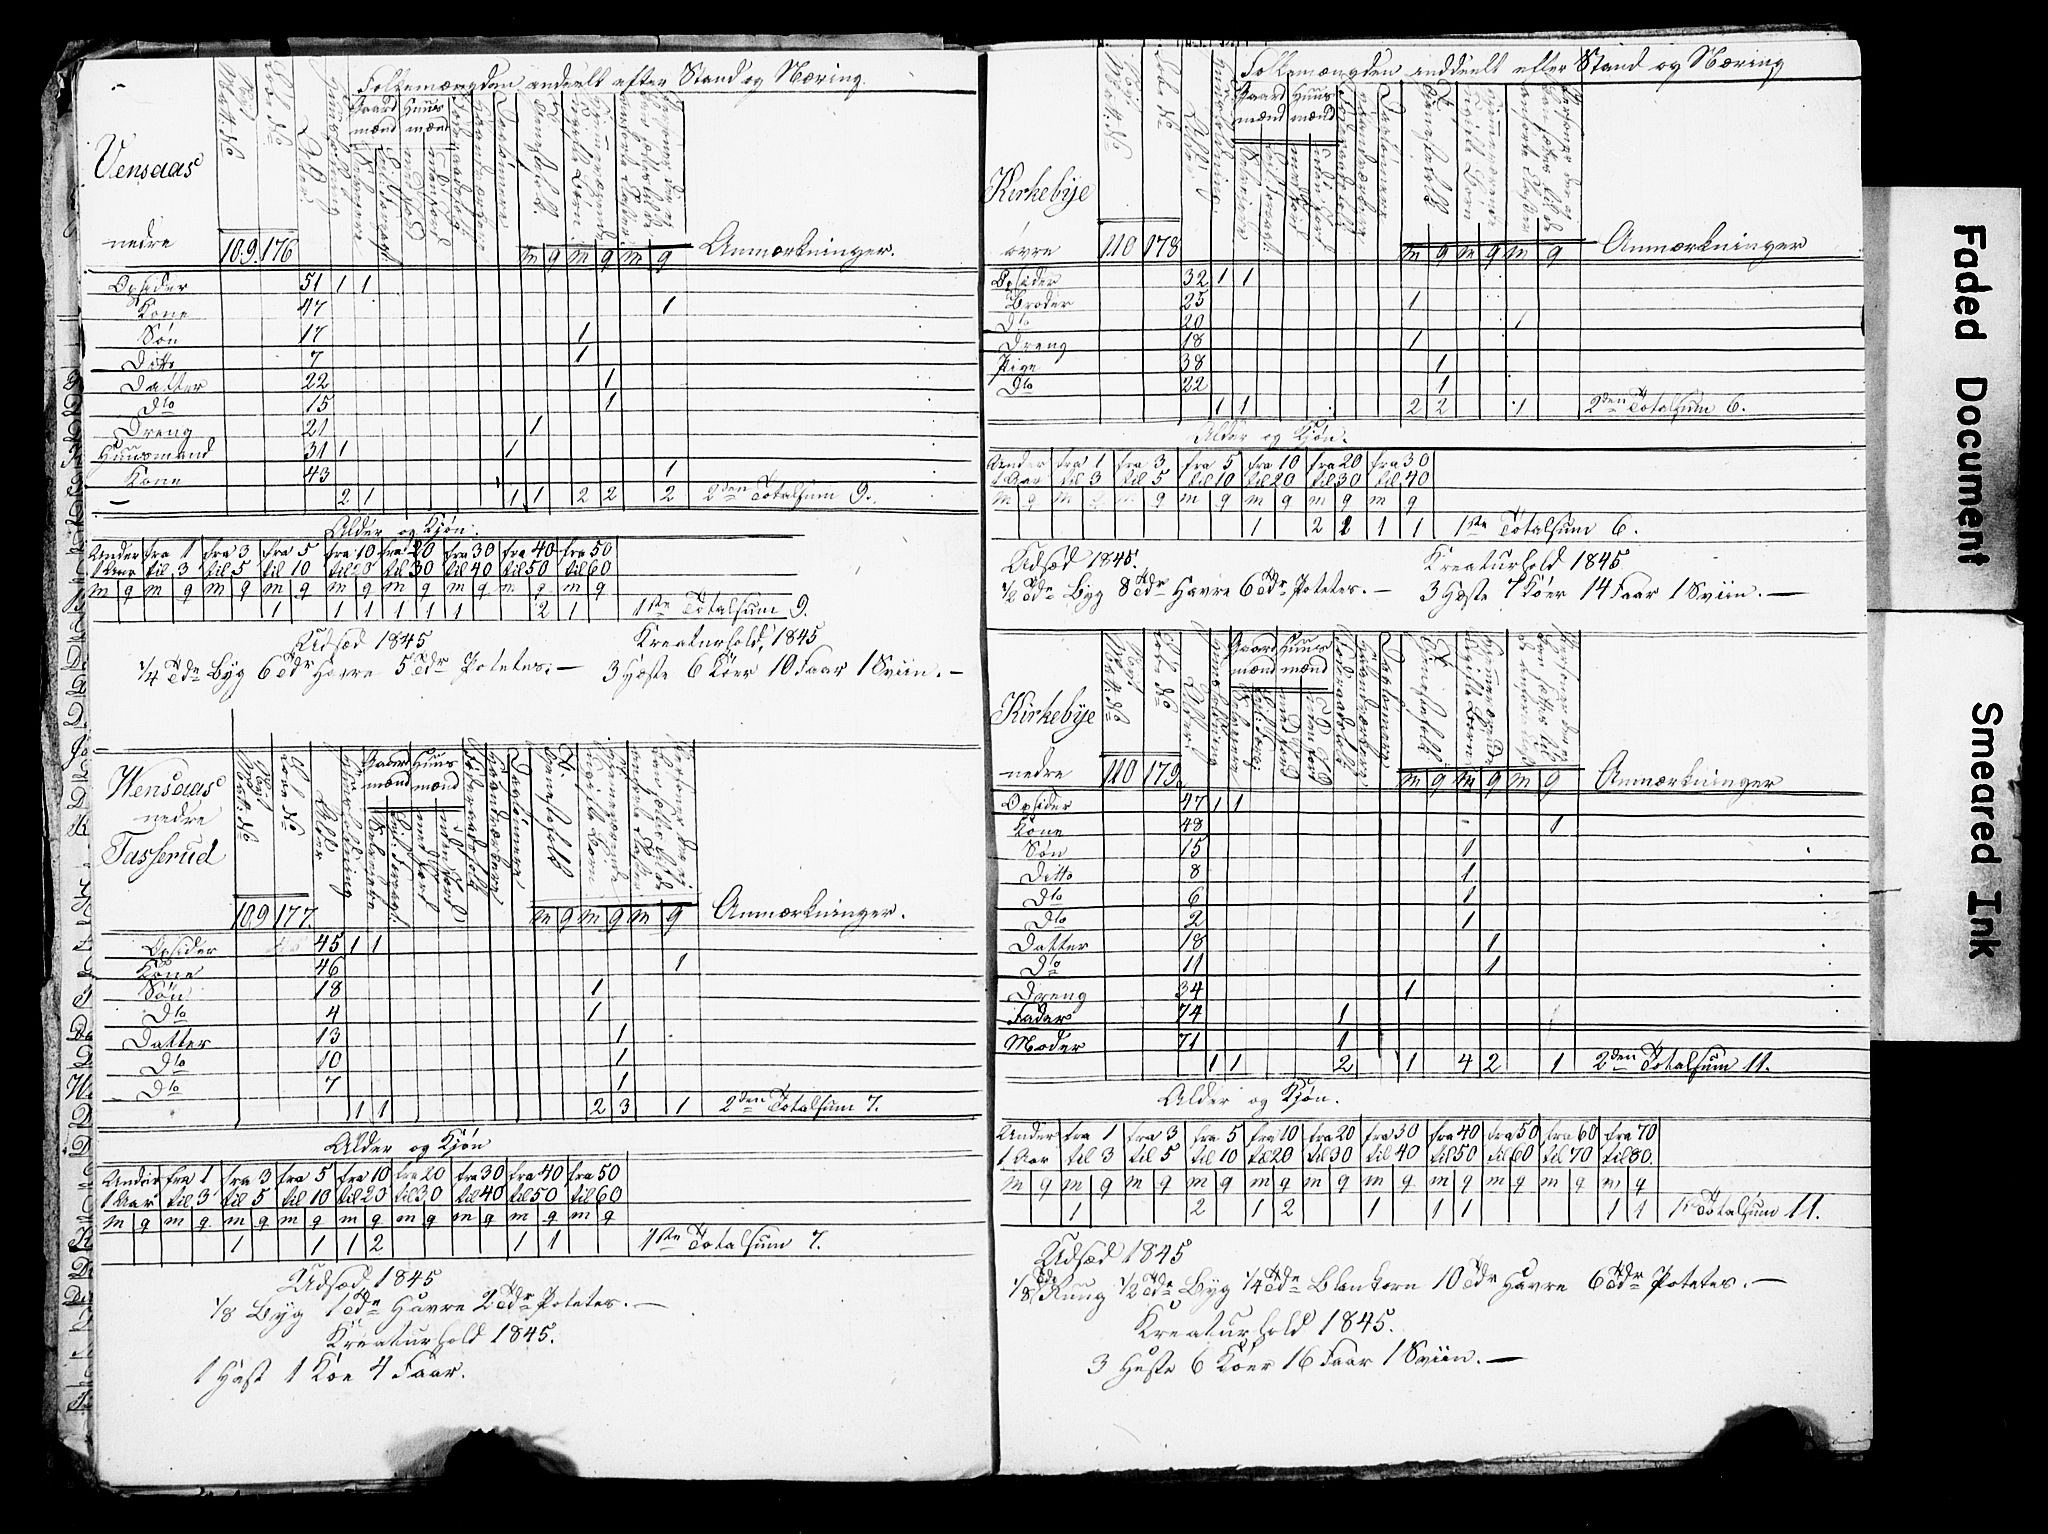 Folkemængden inddeelt efter Stand og Næring.
Vensaas
nedre
Matr. No
Løbe No
Alder
Huusholdning
Gaardmænd
Huusmænd
109. 176
m q m q m q Anmærkninger.
Opsider 51 1 1
Kone 47 1
Søn 17 1
Ditto 7 1
Datter 22 1
Do 15 1
Dreng 21 1
Huusmand 31 1 1
Kone 43 1
2 1 1 1 2 2 2 2den Totalsum 9.
Alder og Kjøn.
Under fra 1 fra 3 fra 5 fra 10 fra 20 fra 30 fra 40 fra 50
1 Aar til 3 til 5 til 10 til 20 til 30 til 40 til 50 til 60
m q m q m q m q m q m q m q m q m q
1 1 1 1 1 1 2 1 1ste Totalsum 9.
Udsæd 1845 Kreaturhold, 1845
1/4 Tde Byg 6 Tdr Havre 5 Tdr Potetes. — 3 Heste 6 Køer 10 Faar 1 Sviin. —
Wensaas
nedre
Tasserud
Matr. No
Løbe No
Alder
Huusholdning
Gaardmænd
Huusmænd
109 177.
m q m q m q Anmærkninger.
Opsider 45 1 1
Kone 46 1
Søn 18 1
Do 4 1
Datter 13 1
Do 10 1
Do 7 1
1 1 2 3 1 2den Totalsum 7.
Alder og Kjøn
Under fra 1 fra 3 fra 5 fra 10 fra 20 fra 30 fra 40 fra 50
1 Aar til 3 til 5 til 10 til 20 til 30 til 40 til 50 til 60
m q m q m q m q m q m q m q m q m q
1 1 1 2 1 1 1ste Totalsum 7.
Udsæd, 1845
1/8 Byg 1 Tde Havre 2 Tdr Potetes. —
Kreaturhold 1845.
1 Hest 1 Koe 4 Faar.
Folkemængden inddeelt efter Stand og Næring
Kirkebye
øvre
Matr. No
Løbe No
Alder
Huusholdning
Gaardmænd
Huusmænd
110 178
m q m q m q Anmærkninger
Opsider 32 1 1
Broder 25 1
Do 20 1
Dreng 18 1
Pige 38 1
Do 22 1
1 1 2 2 1 2den Totalsum 6.
Alder og Kjøn.
Under fra 1 fra 3 fra 5 fra 10 fra 20 fra 30
1 Aar til 3 til 5 til 10 til 20 til 30 til 40
m q m q m q m q m q m q m q
1 2 1 1 1 1ste Totalsum 6.
Udsæd 1845. Kreaturhold 1845
1/2 Tde Byg 8 Tdr Havre 6 Tdr Potetes. — 3 Heste 7 Køer 14 Faar 1 Sviin. —
Kirkebye
nedre
Matr. No
Løbe No
Alder
Huusholdning
Gaardmænd
Huusmænd
110 179
m q m q m q Anmærkninger
Opsider 47 1 1
Kone 48 1
Søn 15 1
Ditto 8 1
Do 6 1
Do 2 1
Datter 18 1
Do 11 1
Dreng 34 1
Fader 74 1
Moder 71 1
1 1 2 1 4 2 1 2den Totalsum 11.
Alder og Kjøn.
Under fra 1 fra 3 fra 5 fra 10 fra 20 fra 30 fra 40 fra 50 fra 60 fra 70
1 Aar til 3 til 5 til 10 til 20 til 30 til 40 til 50 til 60 til 70 til 80.
m q m q m q m q m q m q m q m q m q m q m q
1 2 1 2 1 1 1 1 1 1ste Totalsum 11.
Udsæd 1845
1/8 Tde Rug 1/2 Tde Byg 1/4 Tde Blankorn 10 Tdr Havre 6 Tdr Potetes. —
Kreaturhold 1845.
3 Heste 6 Køer 16 Faar 1 Sviin. —
Faded Document
Smeared Ink